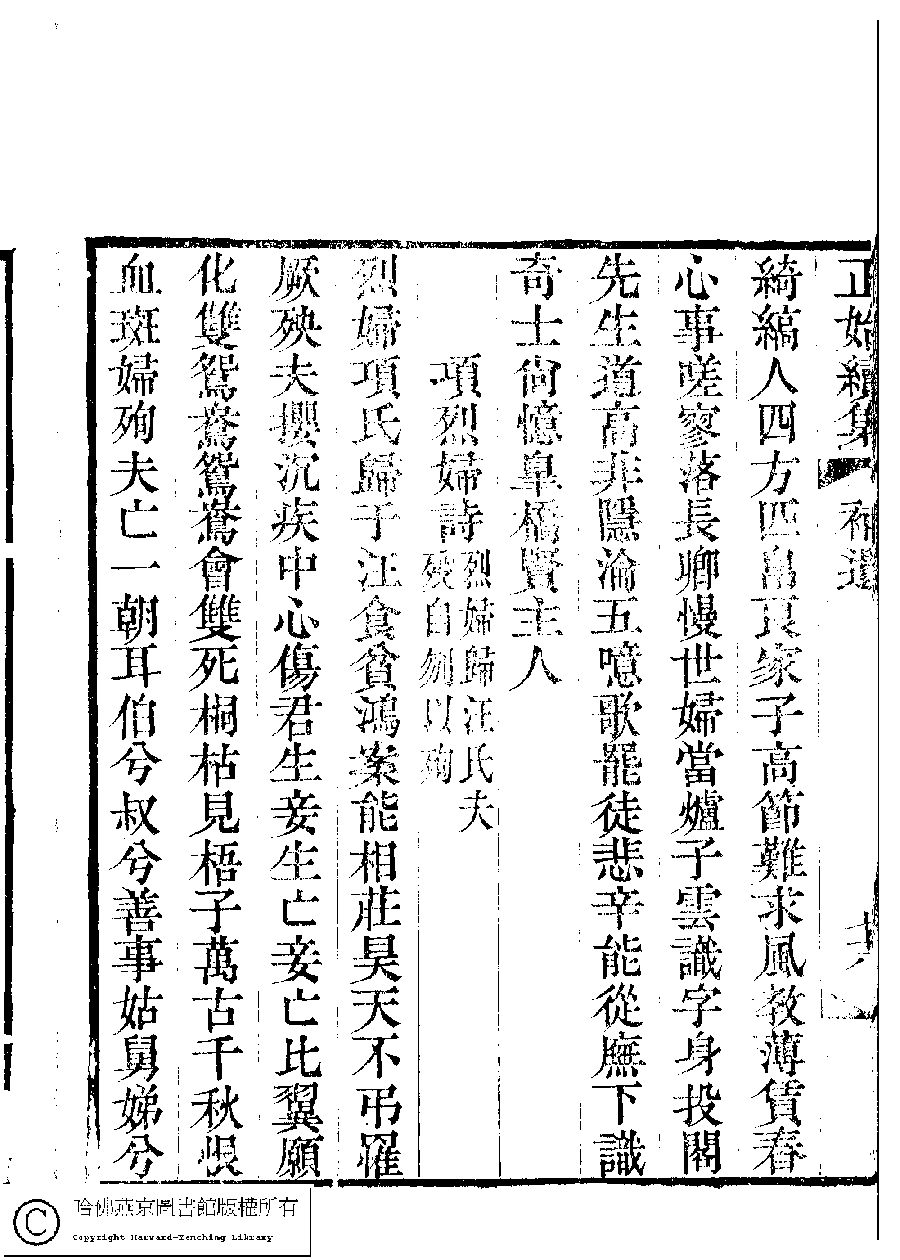 正始續集 補遺
綺縞人四方匹畠良家子高節難求風教薄賃舂
心事嗟寥落長卿慢世婦當爐子雲識字身投閣
先生道高非隱淪五噫歌罷徒悲辛能從廡下識
奇士尙憶臯橋賢主人
項烈婦詩 烈婦歸汪氏夫
歿自刎以殉
烈婦項氏歸于汪食貧鴻案能相莊昊天不弔罹
厥殃夫攖沉疾中心傷君生妾生亡妾亡比翼願
化雙鴛鴦鴛鴦會雙死桐枯見梧子萬古千秋恨
血斑婦殉夫亡一朝耳伯兮叔兮善事姑舅娣兮
哈佛燕京圖書館版權所有
Copyright Harvard-Yenching Library